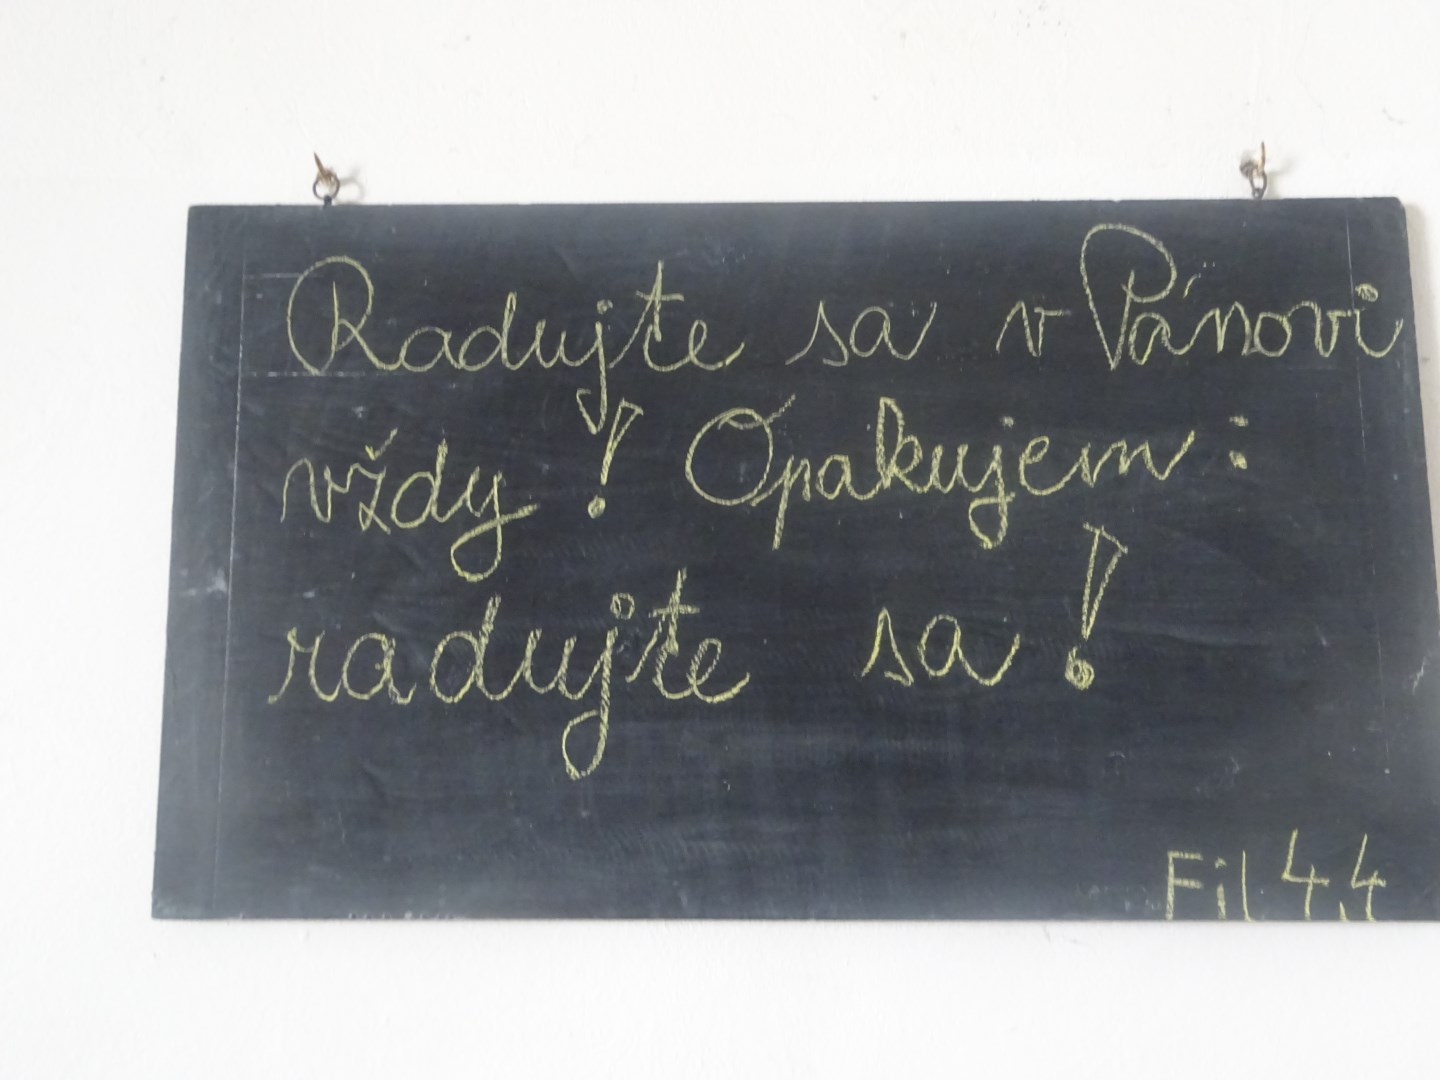 Radujte sa v Pánovi
vždy! Opakujem:
radujte sa!
Fil 4,4